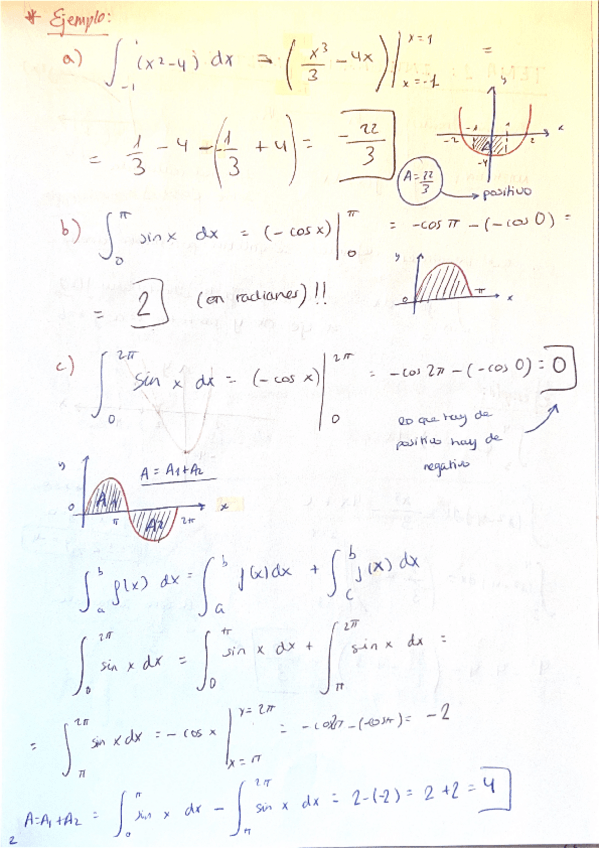 * Ejemplo:
a) ∫₋₁¹ (x²-4) dx = (x³/3 - 4x) |ₓ₌₋₁ˣ⁼¹ =
= 1/3 - 4 - (-1/3 + 4) = -22/3
y x -2 -1 1 2 -4 A
A = 22/3 → positivo
b) ∫₀^π sin x dx = (-cos x) |₀^π = -cos π - (-cos 0) =
= 2 (en radianes)!!
y 0 π x
c) ∫₀^2π sin x dx = (-cos x) |₀^2π = -cos 2π - (-cos 0) = 0
lo que hay de
positivo hay de
negativo
A = A₁+A₂
y 0 A₁ π A₂ 2π x
∫ₐᵇ f(x) dx = ∫ₐᵇ f(x) dx + ∫_c^b f(x) dx
∫₀^2π sin x dx = ∫₀^π sin x dx + ∫_π^2π sin x dx =
= ∫_π^2π sin x dx = -cos x |ₓ₌π^x=2π = -cos2π - (-cosπ) = -2
A=A₁+A₂ = ∫₀^π sin x dx - ∫_π^2π sin x dx = 2-(-2) = 2+2 = 4
2